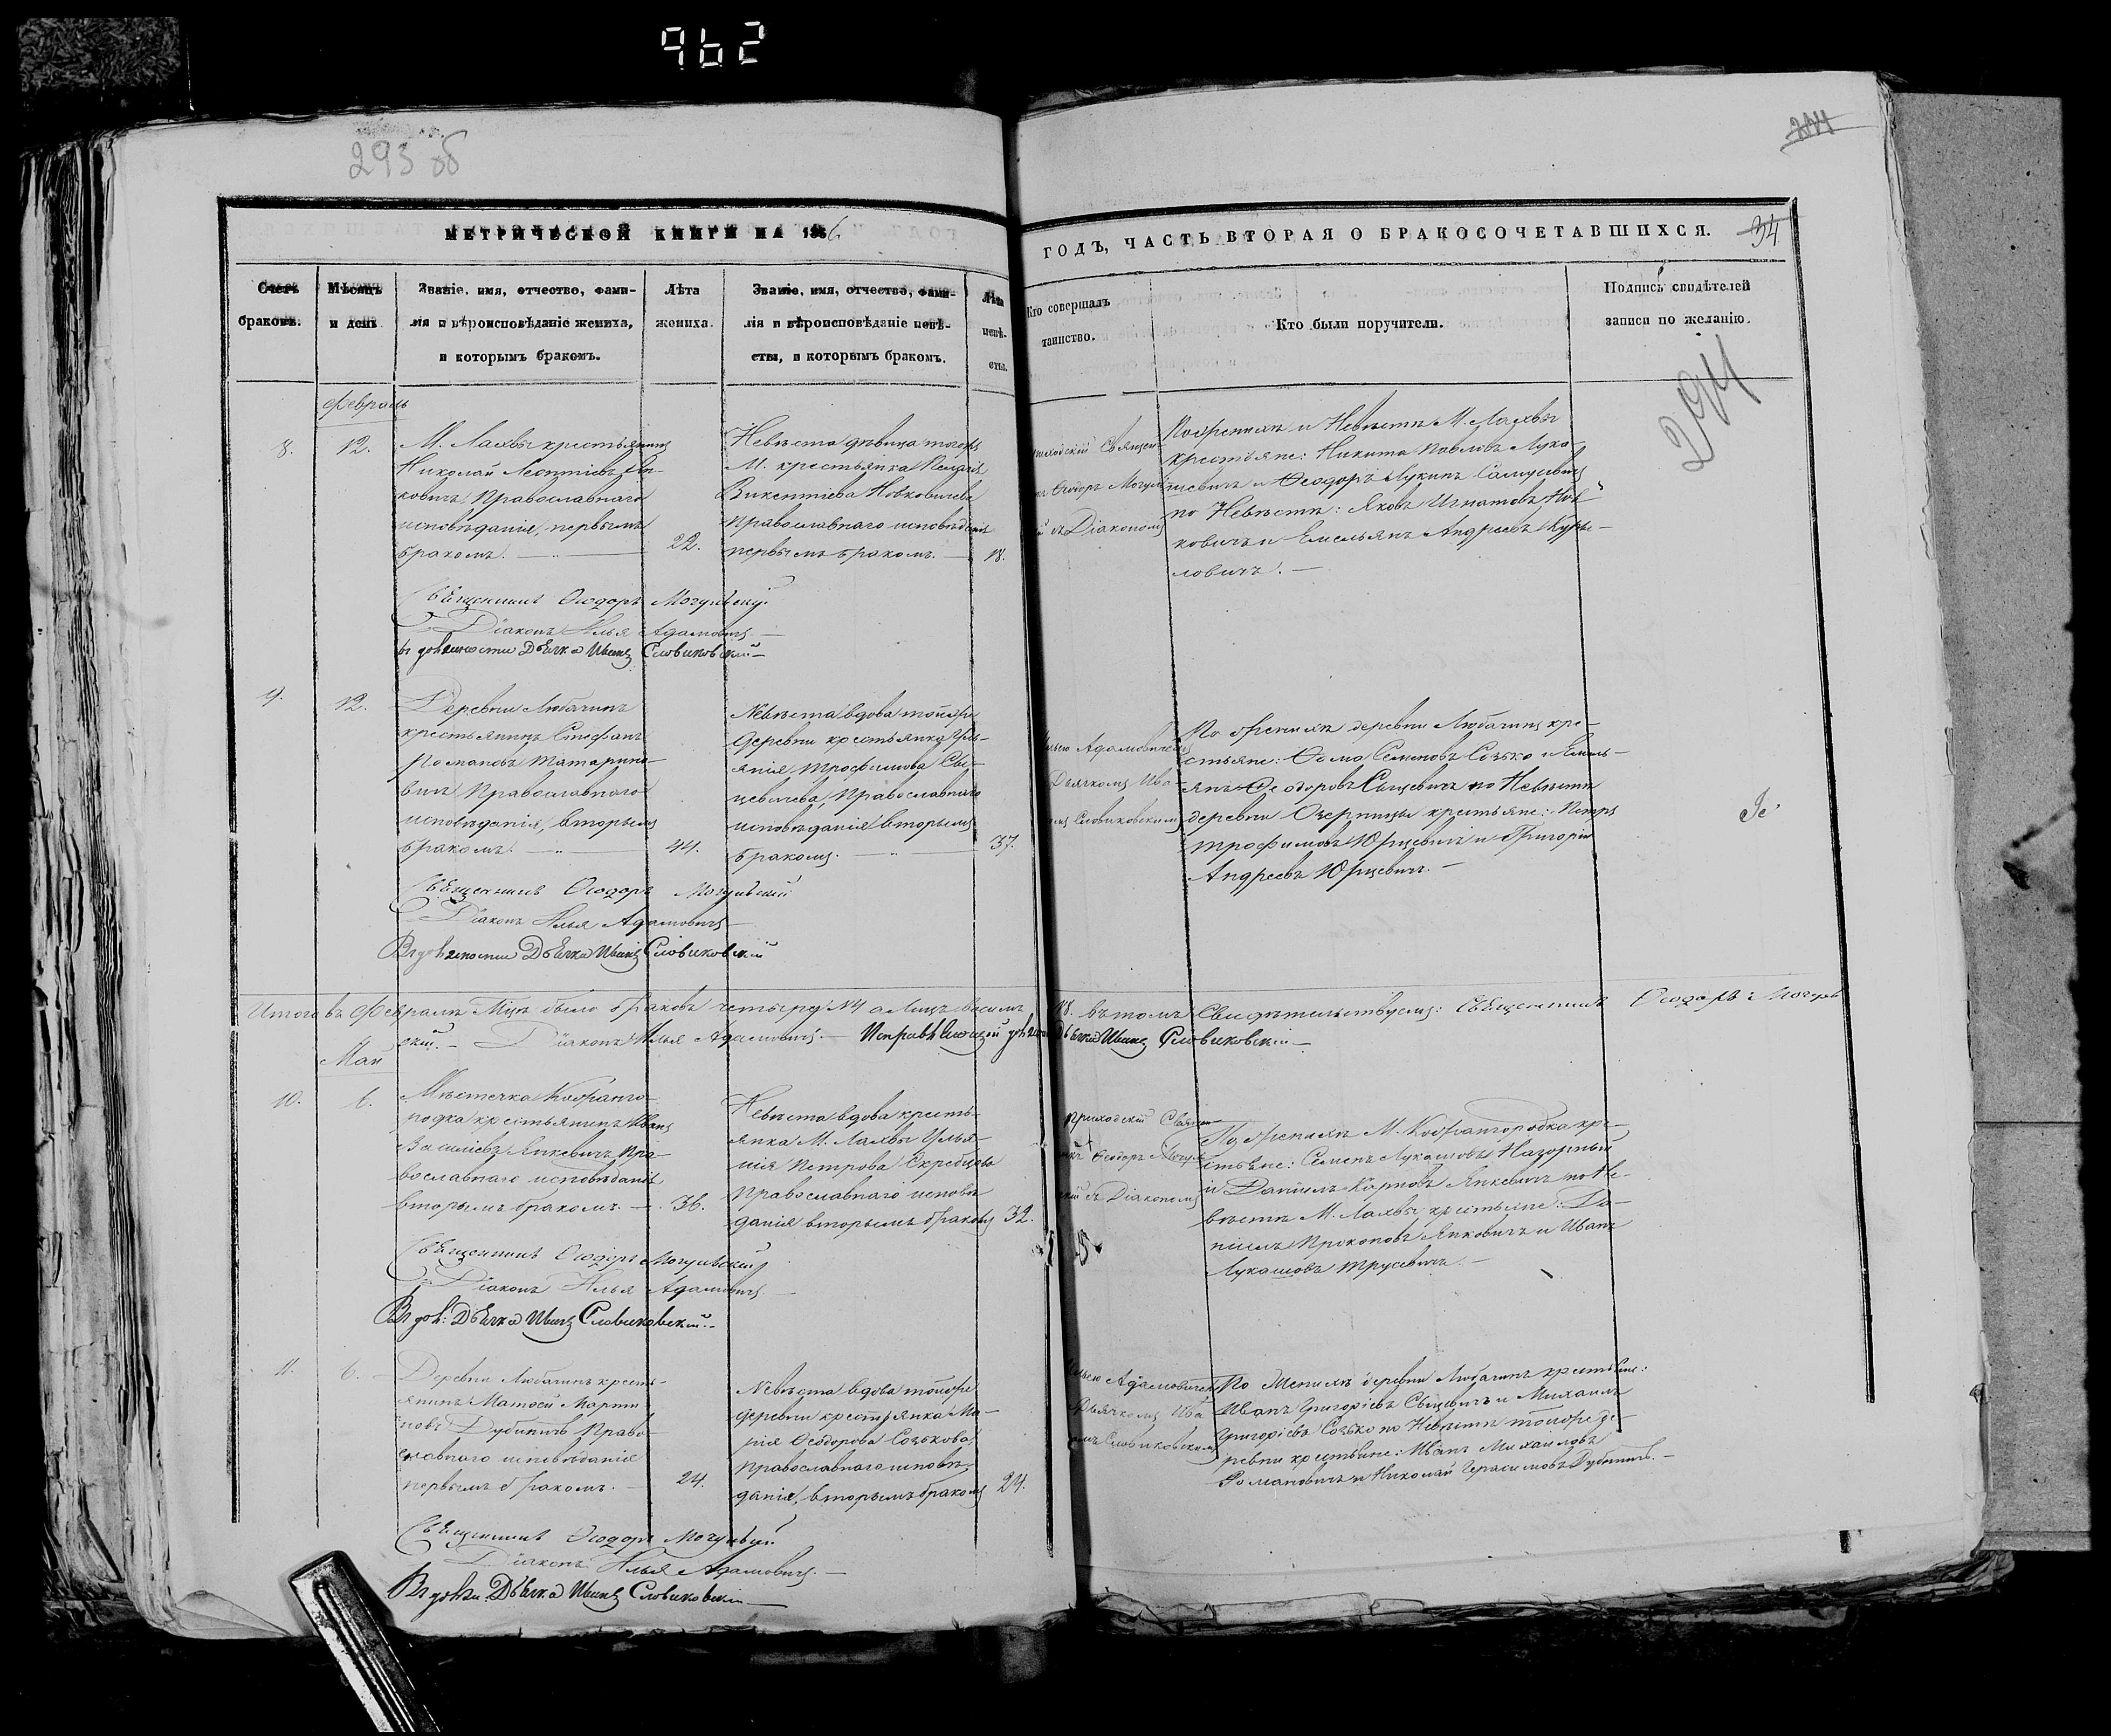 962
293 об
МЕТРИЧЕСКОЙ КНИГИ НА 1866
ГОДЪ, ЧАСТЬ ВТОРАЯ О БРАКОСОЧЕТАВШИХСЯ.
34
294
Счетъ
браковъ.
Мѣсяцъ
и день
Званіе, имя, отчество, фами-
лія и вѣроисповѣданіе жениха,
и которымъ бракомъ.
Лѣта
жениха.
Званіе, имя, отчество, фами-
лія и вѣроисповѣданіе невѣ-
сты, и которымъ бракомъ.
Лѣта
невѣ-
сты.
Кто совершалъ
таинство.
Кто были поручители.
Подпись свидѣтелей
записи по желанію.
Февраль
8.
12.
М. Лахвы крестьянинъ
Николай Леонтіевъ
ковичъ Православнаго
исповѣданія, первымъ
бракомъ.
22.
Невѣста дѣвица тогожъ
М. крестьянка Пелагія
Викентіева Новковичева
православнаго исповѣданія
первымъ бракомъ.
18.
Священ-
Ѳеодоръ Могул
съ Діакономъ
По Женихѣ и Невѣстѣ М. Лахвы
крестьяне: Никита Павловъ Лука-
шевичъ и Ѳеодоръ Лукинъ
по Невѣстѣ: Яковъ Игнатовъ Нов-
ковичъ и Емельянъ Андреевъ Кури-
ловичъ.
Священникъ Ѳеодоръ Могульскій
Діаконъ Илья Адамовичъ
въ должности Дьячка Иванъ Словиковскій
9.
12.
Деревни Любачинъ
крестьянинъ Стефанъ
Романовъ Татарино-
вичъ Православнаго
исповѣданія, вторымъ
бракомъ.
44.
Невѣста вдова тойже
деревни крестьянка Уль-
янія Трофимова Сви-
цевичева, Православнаго
исповѣданія вторымъ
бракомъ.
37.
Ильею Адамовичемъ
Дьячкомъ Ива-
номъ Словиковскимъ
По Женихѣ деревни Любачинъ кре-
стьяне: Ѳома Семеновъ Созько и Емель-
янъ Ѳеодоровъ Свицевичъ по Невѣстѣ
деревни Озерницы крестьяне: Петръ
Трофимовъ Юрцевичъ и Григорій
Андреевъ Юрцевичъ.
Священникъ Ѳеодоръ Могульскій
Діаконъ Илья Адамовичъ
Въ должности Дьячка Иванъ Словиковскій
Итого въ Февралѣ М͠цѣ было браковъ четыре №4 а лицъ восемь №8. въ томъ Свидѣтельствуемъ: Священникъ Ѳеодоръ Могуль-
скій. Діаконъ Илья Адамовичъ. Исправляющій должн. Дьячка Иванъ Словиковскій
Май
10.
6.
Мѣстечка Кожангo-
родка крестьянинъ Иванъ
Василіевъ Янкевичъ Пра-
вославнаго исповѣданія
вторымъ бракомъ.
36.
Невѣста вдова кресть-
янка М. Лахвы Улья-
нія Петрова Скребцова
православнаго исповѣ-
данія вторымъ бракомъ
32.
Приходскій Священ-
никъ Ѳеодоръ Могуль
скій съ Діакономъ
По Женихѣ М. Кожангородка кре-
стьяне: Семенъ Лукашовъ Нагорный
и Даніилъ Карповъ Янкевичъ по Не-
вѣстѣ М. Лахвы крестьяне: Да-
ніилъ Прокоповъ Янковичъ и Иванъ
Лукашовъ Трусевичъ.
Священникъ Ѳеодоръ Могульскій
Діаконъ Илья Адамовичъ
Въ дол: Дьячка Иванъ Словиковскій
11.
6.
Деревни Любачинъ кресть-
янинъ Матѳей Марти-
новъ Дубиничъ Право-
славнаго исповѣданія
первымъ бракомъ.
24.
Невѣста вдова тойже
деревни крестьянка Ма-
рія Ѳеодорова Созькова,
православнаго исповѣ-
данія, вторымъ бракомъ
24.
Ильею Адамовичемъ
Дьячкомъ Ива
номъ Словиковскимъ
По Женихѣ деревни Любачинъ крестьяне:
Иванъ Григоріевъ Свицевичъ и Михаилъ
Григоріевъ Созько по Невѣстѣ тойже де-
ревни крестьяне: Иванъ Михаиловъ
Романовичъ и Николай Герасимовъ Дубиничъ.
Священникъ Ѳеодоръ Могульскій
Діаконъ Илья Адамовичъ.
Въ должн. Дьячка Иванъ Словиковскій